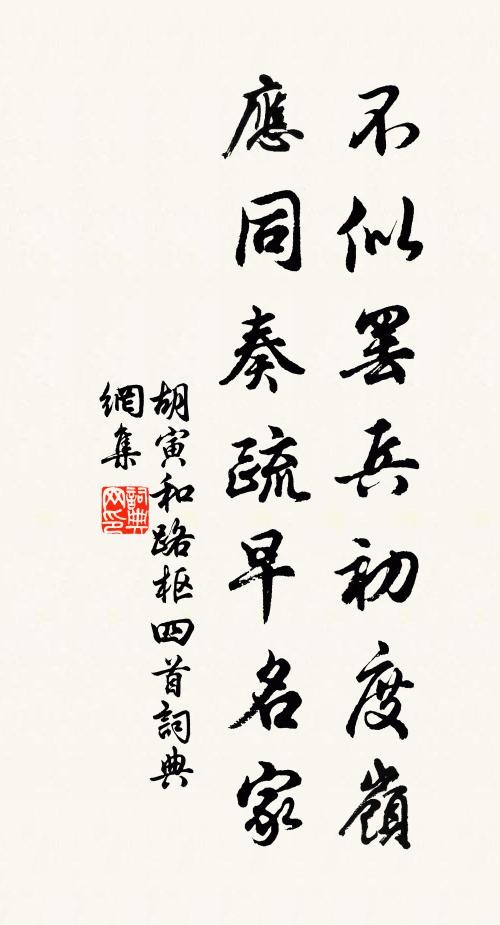 不似罢兵初度嶺
應同奏疏早名家
胡寅和路枢四首詞典
網集
詞典
网印